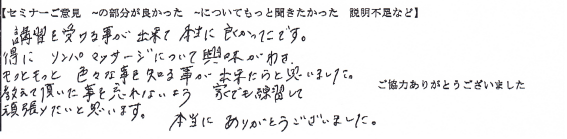 【セミナーご意見　~の部分が良かった　~についてもっと聞きたかった　説明不足など】
講習を受ける事が出来て 本当に良かったです。
得に リンパマッサージについて興味がわき、
もっともっと 色々な事を知る事が出来たらと思いました。
教えて頂いた事を忘れないよう 家でも練習して
頑張りたいと思います。
本当に ありがとうございました。
ご協力ありがとうございました